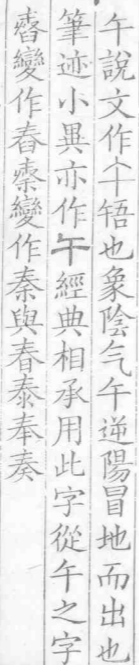 午說文作𠂉十啎也象陰气午逆陽冒地而出也
筆迹小異亦作午經典相承用此字從午之字
舂變作舂𥠼變作秦與春泰奉奏